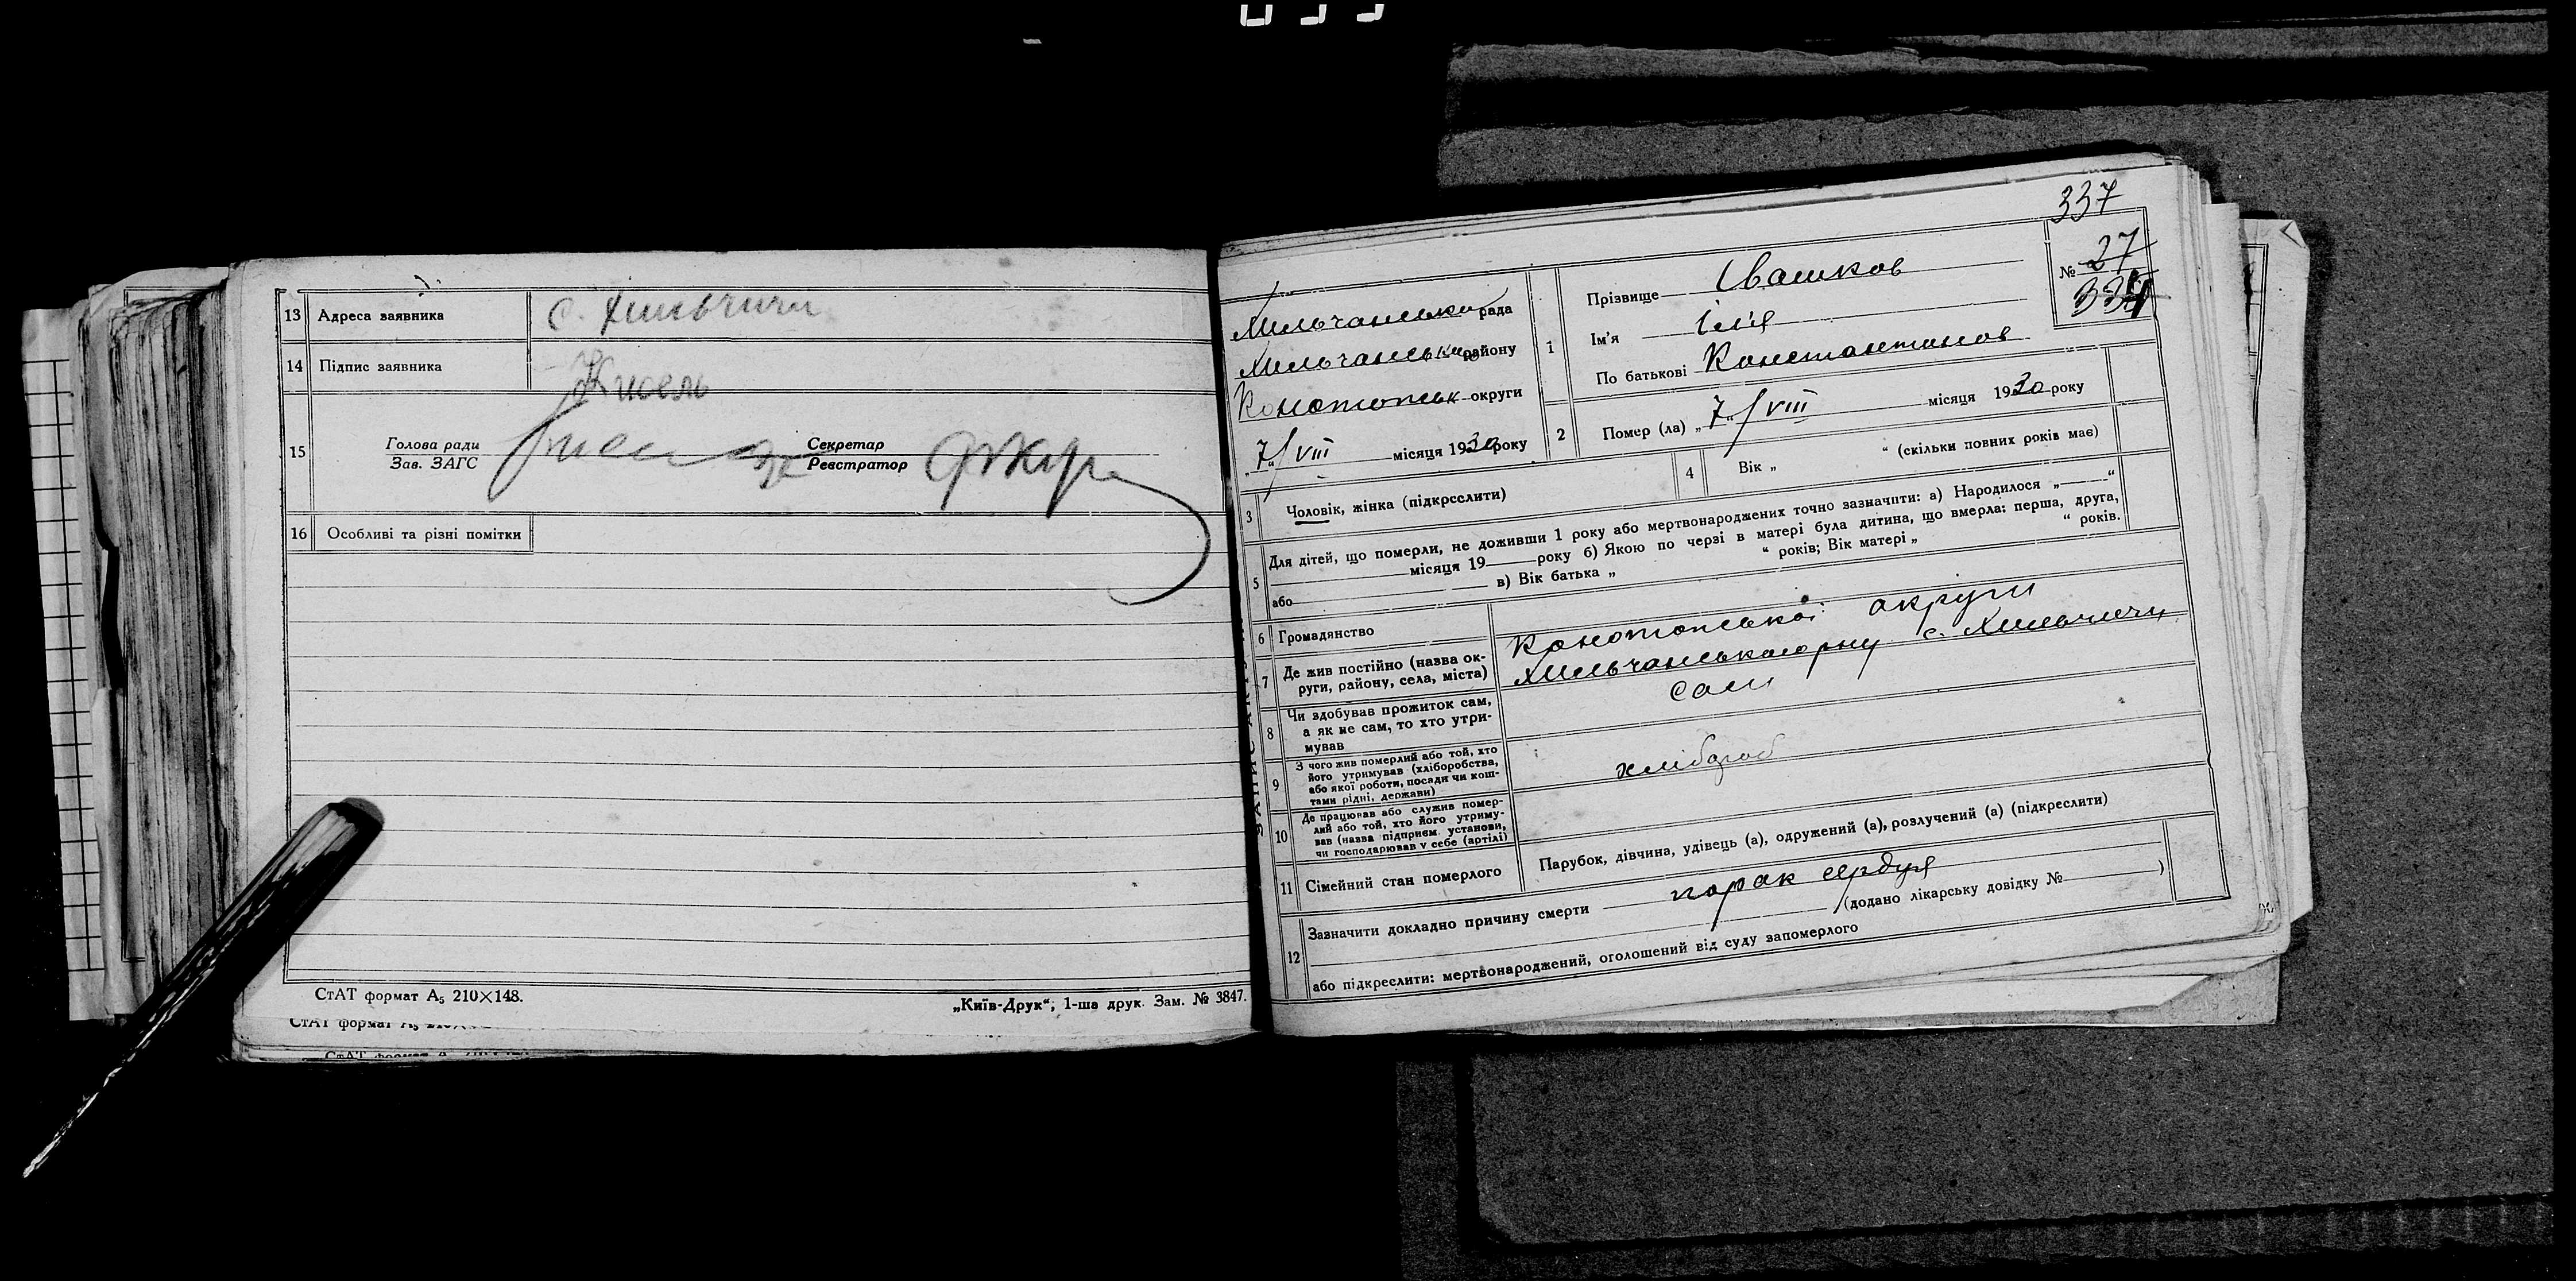 13 Адреса заявника с. Хильчичи
14 Підпис заявника Кисель
15 Голова ради Секретар
Зав. ЗАГС Реєстратор
16 Особливі та різні помітки
СтАТ формат А5 210×148.
„Київ-Друк“, 1-ша друк. Зам. № 3847.
СтАТ формат А5
337
Хильчанська рада
Хильчанського району
Конотопськ округи
„7/VIII місяця 1930 року
1 Прізвище Івашков
Ім'я Ілля
По батькові Константинов
№ 27
334
2 Помер (ла) „7/VIII місяця 1930 року
3 Чоловік, жінка (підкреслити)
4 Вік „ “ (скільки повних років має)
5 Для дітей, що померли, не доживши 1 року або мертвонароджених точно зазначити: а) Народилося „ “
місяця 19 року б) Якою по черзі в матері була дитина, що вмерла: перша, друга,
або в) Вік батька „ “ років; Вік матері „ “ років.
6 Громадянство
7 Де жив постійно (назва ок-
руги, району, села, міста)
Конотопської округи
Хильчанського рну с. Хильчичи
8 Чи здобував прожиток сам,
а як не сам, то хто утри-
мував
сам
9 З чого жив померлий або той, хто
його утримував (хліборобства,
або якої роботи, посади чи кош-
тами рідні, держави)
хлібороб
10 Де працював або служив помер-
лий або той, хто його утриму-
вав (назва підприєм. установи,
чи господарював у себе (артілі)
11 Сімейний стан померлого Парубок, дівчина, удівець (а), одружений (а), розлучений (а) (підкреслити)
12 Зазначити докладно причину смерти порок сердця
(додано лікарську довідку № )
або підкреслити: мертвонароджений, оголошений від суду запомерлого